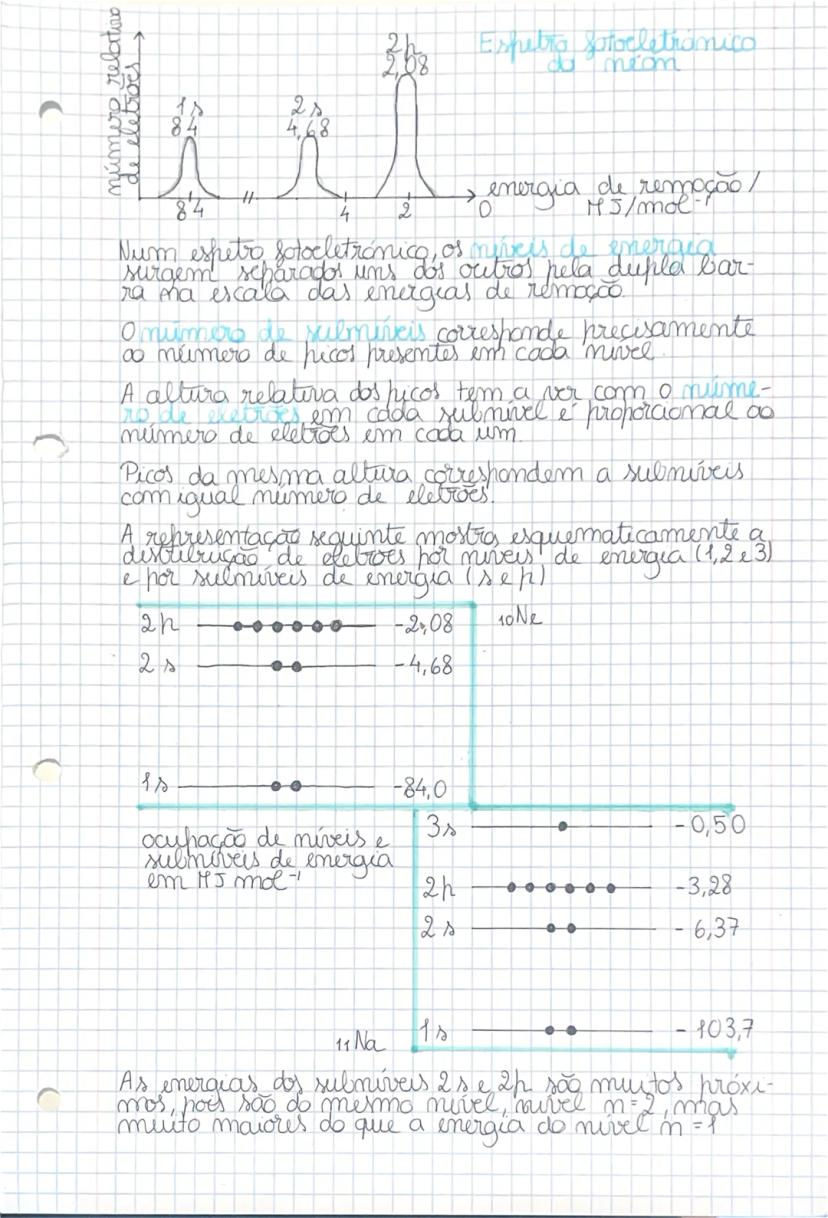 Espetro fotoeletrónico
do néon
número relativo
de eletrões
1s
84
2s
4,68
2p
2,08
84
4
2
0
energia de remoção/
MJ/mol⁻¹
Num espetro fotoeletrónico, os níveis de energia
surgem separados uns dos outros pela dupla bar-
ra na escala das energias de remoção.
O número de subníveis corresponde precisamente
ao número de picos presentes em cada nível.
A altura relativa dos picos tem a ver com o núme-
ro de eletrões em cada subnível é proporcional ao
número de eletrões em cada um.
Picos da mesma altura correspondem a subníveis
com igual número de eletrões.
A representação seguinte mostra esquematicamente a
distribuição de eletrões por níveis de energia (1,2 e 3)
e por subníveis de energia (s e p)
2p -2,08
10Ne
2s -4,68
1s -84,0
ocupação de níveis e
subníveis de energia
em MJ mol⁻¹
3s -0,50
2p -3,28
2s -6,37
1s -103,7
11Na
As energias dos subníveis 2s e 2p são muitos próxi-
mos, pois são do mesmo nível, nível n=2, mas
muito maiores do que a energia do nível n=1